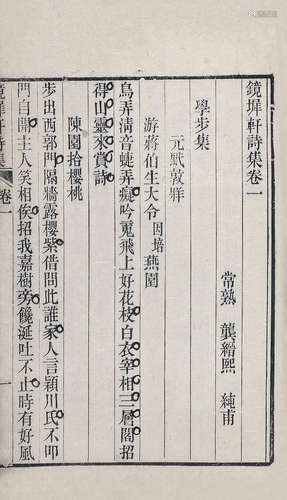 鏡墀軒詩集卷一
常熟 龔縉熙 純甫
學步集
元默敦牂
游蔣伯生大令因培燕園
鳥弄清音蜨弄癡吟䰟飛上好花枝白衣宰相三層閣招
得山靈來賞詩
陳園拾櫻桃
步出西郭門隔牆露櫻紫借問此誰家人言穎川氏不叩
門自開主人笑相俟招我嘉樹旁饞涎吐不止時有好風
鏡墀軒詩集
卷一
一